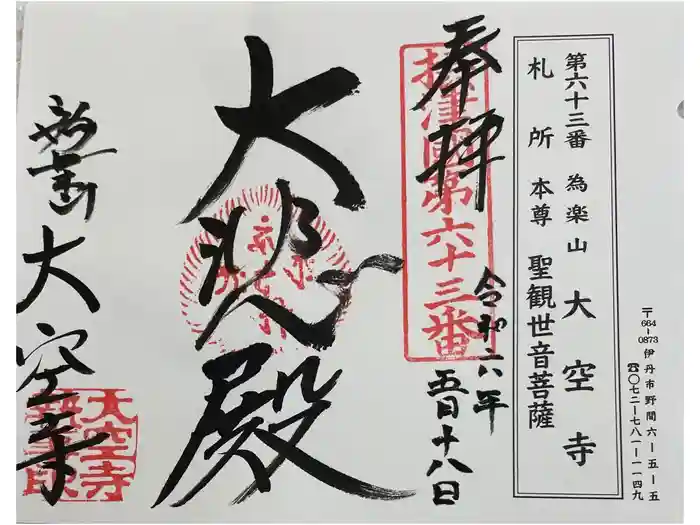 第六十三番 為楽山 大空寺
札所本尊 聖観世音菩薩
〒664-0873 伊丹市野間六ー五ー五
☎〇七二ー七八一ー一一四九
奉拝
摂津國第六十三番
令和六年
五月十八日
大悲殿
大空寺
大空寺